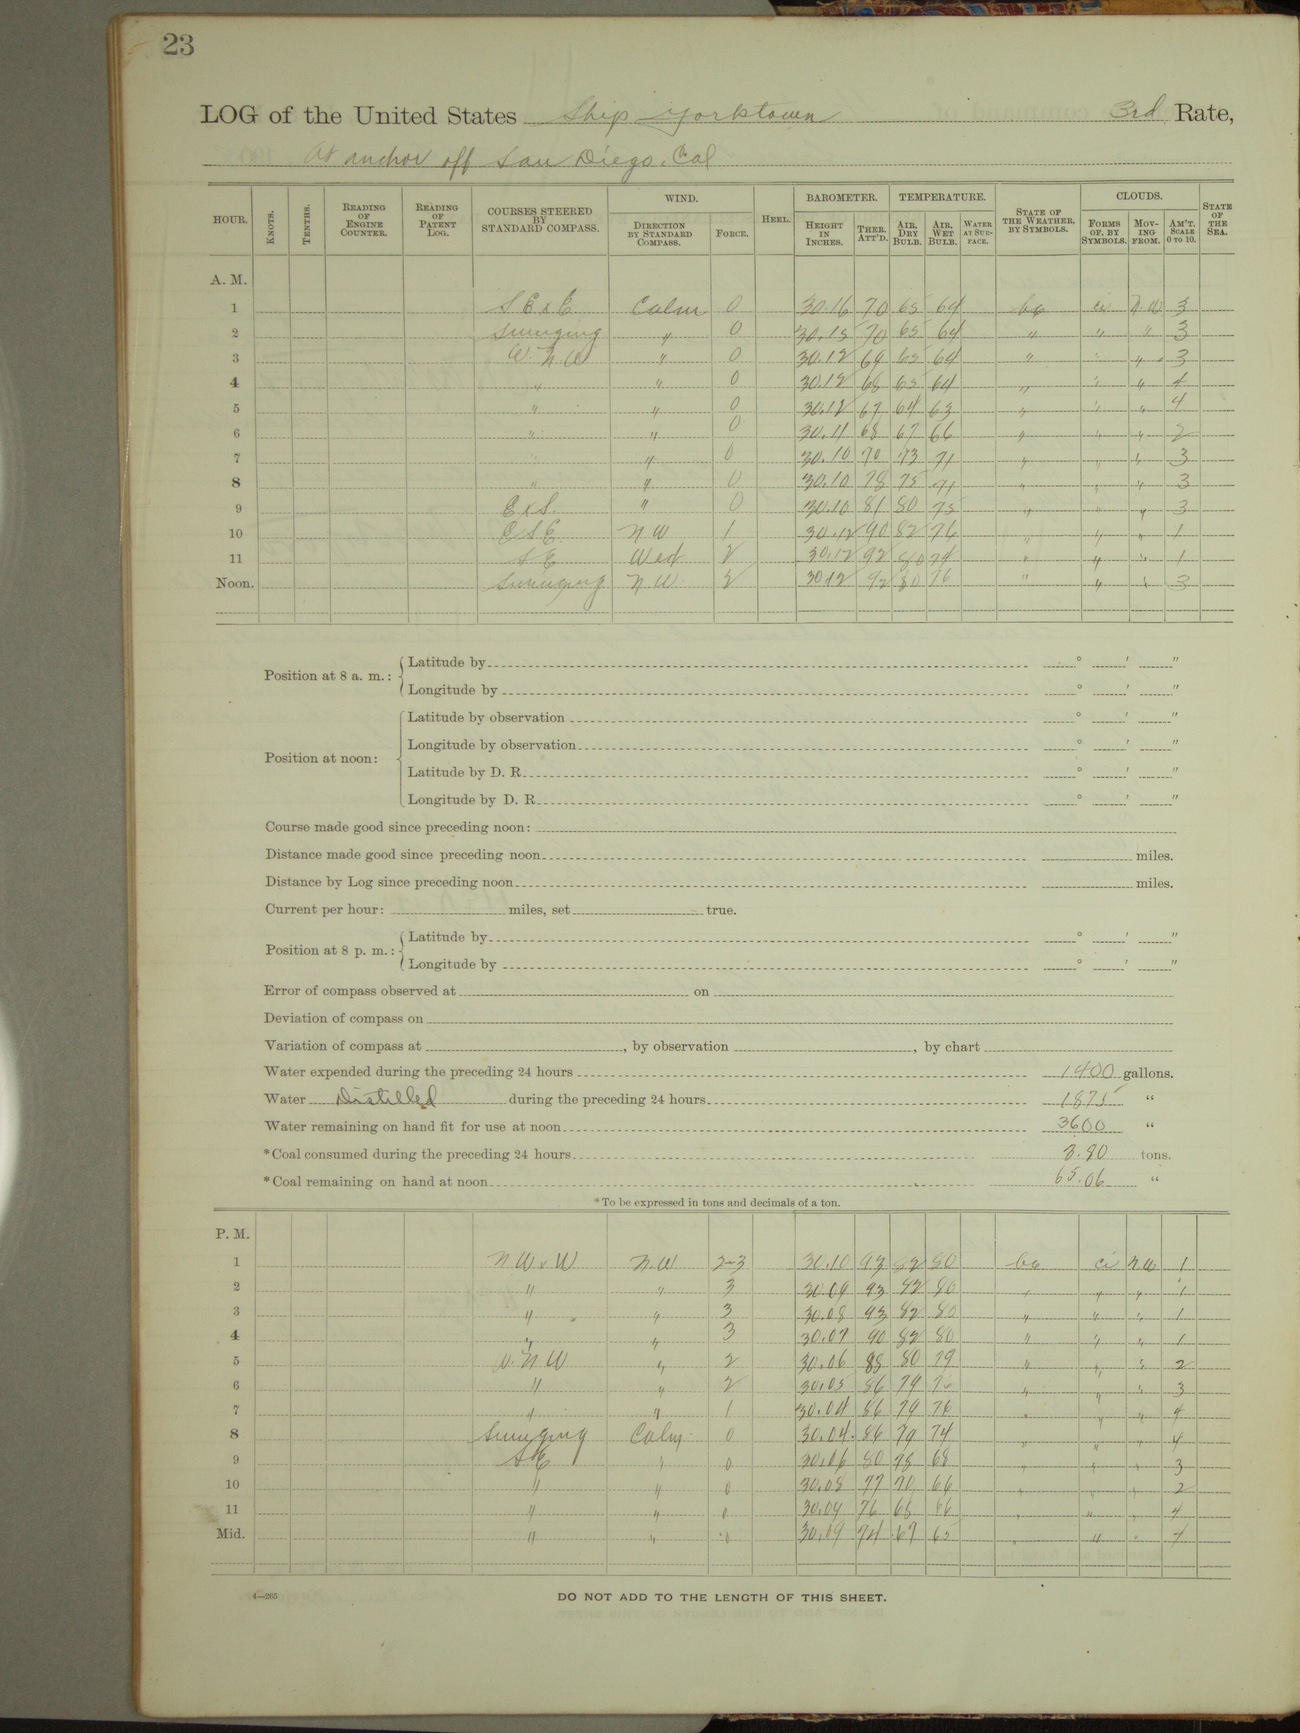 23
LOG of the United States Ship Yorktown 3rd Rate,
At anchor off San Diego, Cal
HOUR. KNOTS. TENTHS. READING OF ENGINE COUNTER. READING OF PATENT LOG. COURSES STEERED BY STANDARD COMPASS. WIND. DIRECTION BY STANDARD COMPASS. FORCE. HEEL. BAROMETER. HEIGHT IN INCHES. THER. ATT'D. TEMPERATURE. AIR, DRY BULB. AIR, WET BULB. WATER AT SURFACE. STATE OF THE WEATHER, BY SYMBOLS. CLOUDS. FORMS OF, BY SYMBOLS. MOVING FROM. AM'T. SCALE 0 TO 10. STATE OF THE SEA.
A. M.
1 S E x E Calm 0 30.16 70 65 64 bc ci N.W 3
2 Swinging " 0 30.15 70 65 64 " " " 3
3 W. N. W " 0 30.12 69 65 64 " " " 3
4 " " 0 30.12 68 65 64 " " " 4
5 " " 0 30.12 67 64 63 " " " 4
6 " " 0 30.11 68 67 66 " " " 2
7 " " 0 30.10 70 73 71 " " " 3
8 " " 0 30.10 78 75 71 " " " 3
9 E x S. " 0 30.10 81 80 75 " " " 3
10 E S E N W 1 30.12 90 82 76 " " " 1
11 S E West 2 30.12 92 80 74 " " " 1
Noon. Swinging N. W. 2 30.12 92 80 76 " " " 3
Position at 8 a. m.: Latitude by ° ′ ″
Longitude by ° ′ ″
Position at noon: Latitude by observation ° ′ ″
Longitude by observation ° ′ ″
Latitude by D. R. ° ′ ″
Longitude by D. R. ° ′ ″
Course made good since preceding noon:
Distance made good since preceding noon miles.
Distance by Log since preceding noon miles.
Current per hour: miles, set true.
Position at 8 p. m.: Latitude by ° ′ ″
Longitude by ° ′ ″
Error of compass observed at on
Deviation of compass on
Variation of compass at , by observation , by chart
Water expended during the preceding 24 hours 1400 gallons.
Water Distilled during the preceding 24 hours 1875 "
Water remaining on hand fit for use at noon 3600 "
*Coal consumed during the preceding 24 hours 3.80 tons.
*Coal remaining on hand at noon 65.06 "
*To be expressed in tons and decimals of a ton.
P. M.
1 N W x W N. W 2-3 30.10 93 82 80 bc ci N W 1
2 " " 3 30.09 93 82 80 " " " 1
3 " " 3 30.08 93 82 80 " " " 1
4 " " 3 30.07 90 82 80 " " " 1
5 W. N W " 2 30.06 88 80 79 " " " 2
6 " " 2 30.05 86 79 76 " " " 3
7 " " 1 30.04 86 79 76 " " " 4
8 Swinging Calm 0 30.04 86 79 74 " " " 4
9 S E " 0 30.06 80 78 68 " " " 3
10 " " 0 30.08 77 70 66 " " " 2
11 " " 0 30.09 76 68 66 " " " 4
Mid. " " 0 30.09 74 67 65 " " " 4
4—265
DO NOT ADD TO THE LENGTH OF THIS SHEET.